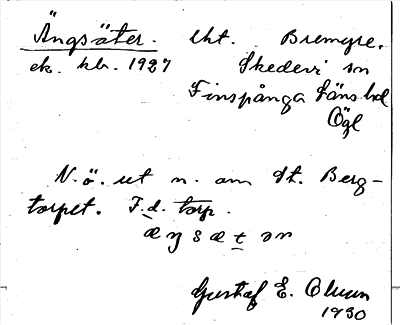 Ängsäter. lht. Bremyre,
ek. kb. 1927 Skedevi sn
Finspånga läns hd
Ögl
N. ö. ut n. om St. Berg-
torpet. F.d. torp.
æŋsætər
Gustaf E. Olsson
1930